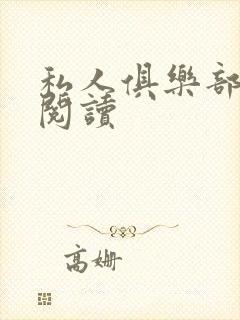 私人俱樂部
閱讀
高姍